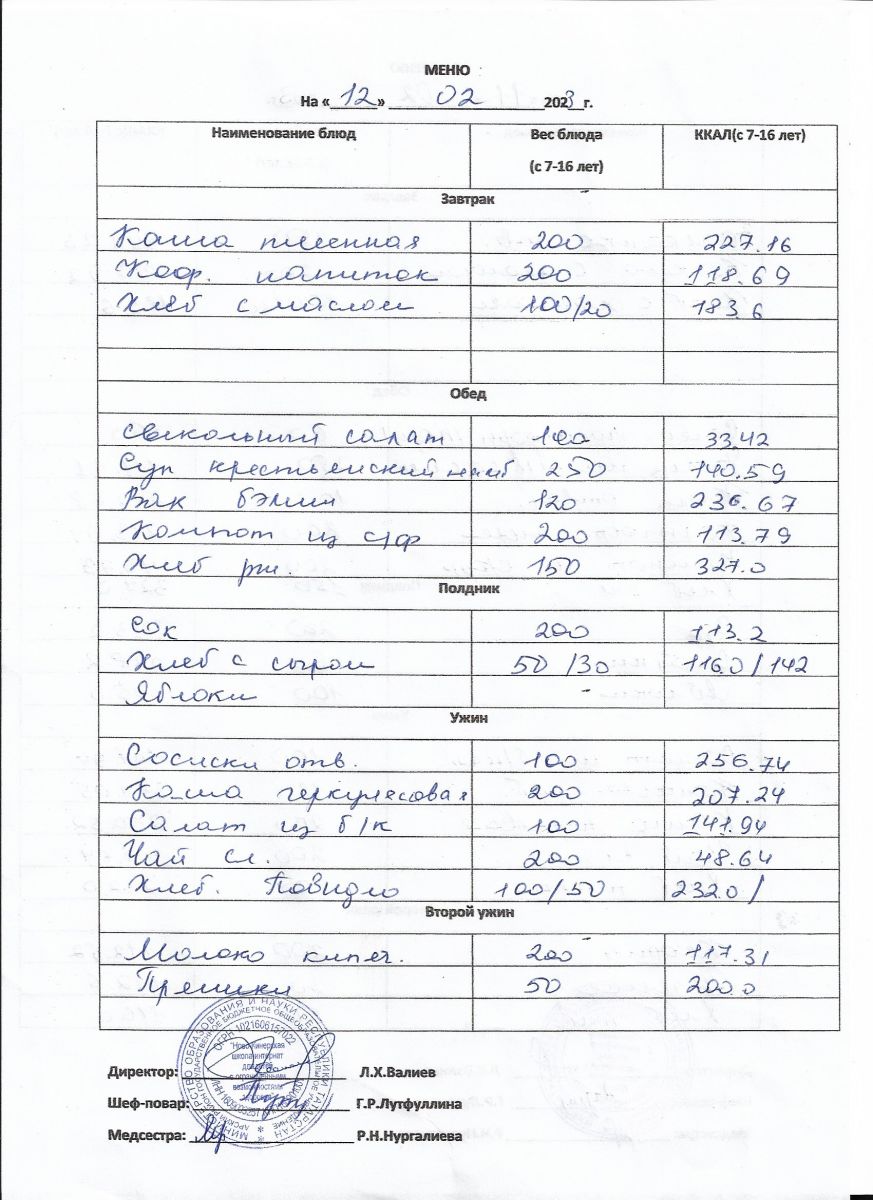 МЕНЮ
На « 12 » 02 2023 г.
Наименование блюд Вес блюда (с 7-16 лет) ККАЛ(с 7-16 лет)
Завтрак
Каша пшенная 200 227.16
Коф. напиток 200 118.69
Хлеб с маслом 100/20 183.6
Обед
Свекольный салат 100 33.42
Суп крестьянский 250 140.59
120 236.67
Компот из с/ф 200 113.79
Хлеб рж. 150 327.0
Полдник
Сок 200 113.2
Хлеб с сыром 50 /30 116.0/142
Яблоки -
Ужин
Сосиски отв. 100 256.74
Каша геркулесовая 200 207.24
Салат из б/к 100 141.94
Чай сл. 200 48.64
Хлеб. Повидло 100/50 232.0/
Второй ужин
Молоко кипеч. 200 117.31
Пряники 50 200.0
Директор: Л.Х.Валиев
Шеф-повар: Г.Р.Лутфуллина
Медсестра: Р.Н.Нургалиева